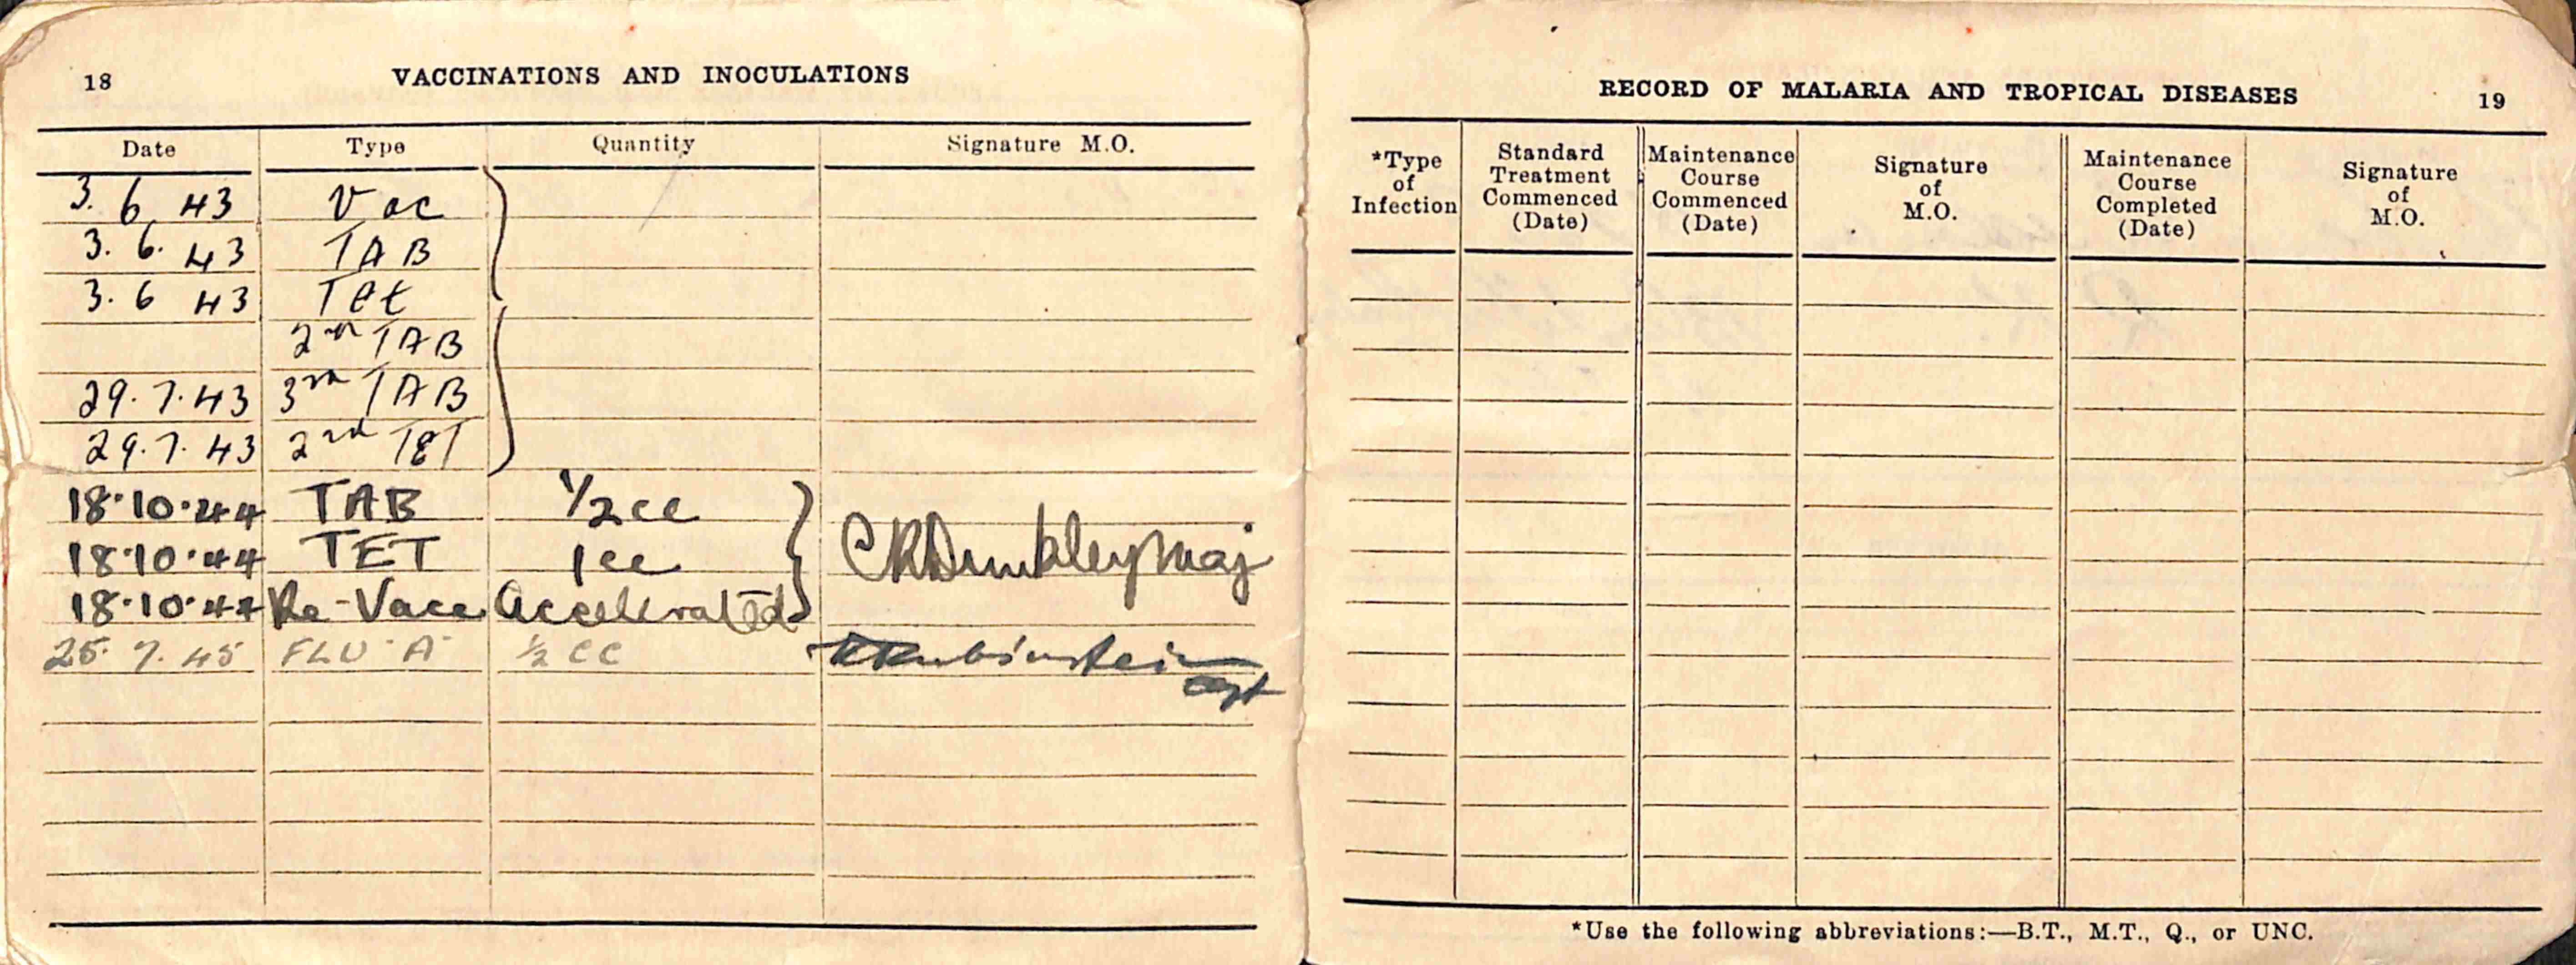 18 VACCINATIONS AND INOCULATIONS
Date Type Quantity Signature M.O.
3. 6. 43 Vac
3. 6. 43 TAB
3. 6 43 Tet
2nd TAB
29.7.43 3rd TAB
29.7.43 2nd TET
18.10.44 TAB 1/2cc
18.10.44 TET 1cc CRDumbleyMaj
18.10.44 Re-Vacc Accelerated
25.7.45 FLU "A" 1/2 CC Rubinstein
Capt
RECORD OF MALARIA AND TROPICAL DISEASES 19
*Type of Infection
Standard Treatment Commenced (Date)
Maintenance Course Commenced (Date)
Signature of M.O.
Maintenance Course Completed (Date)
Signature of M.O.
*Use the following abbreviations:—B.T., M.T., Q., or UNC.